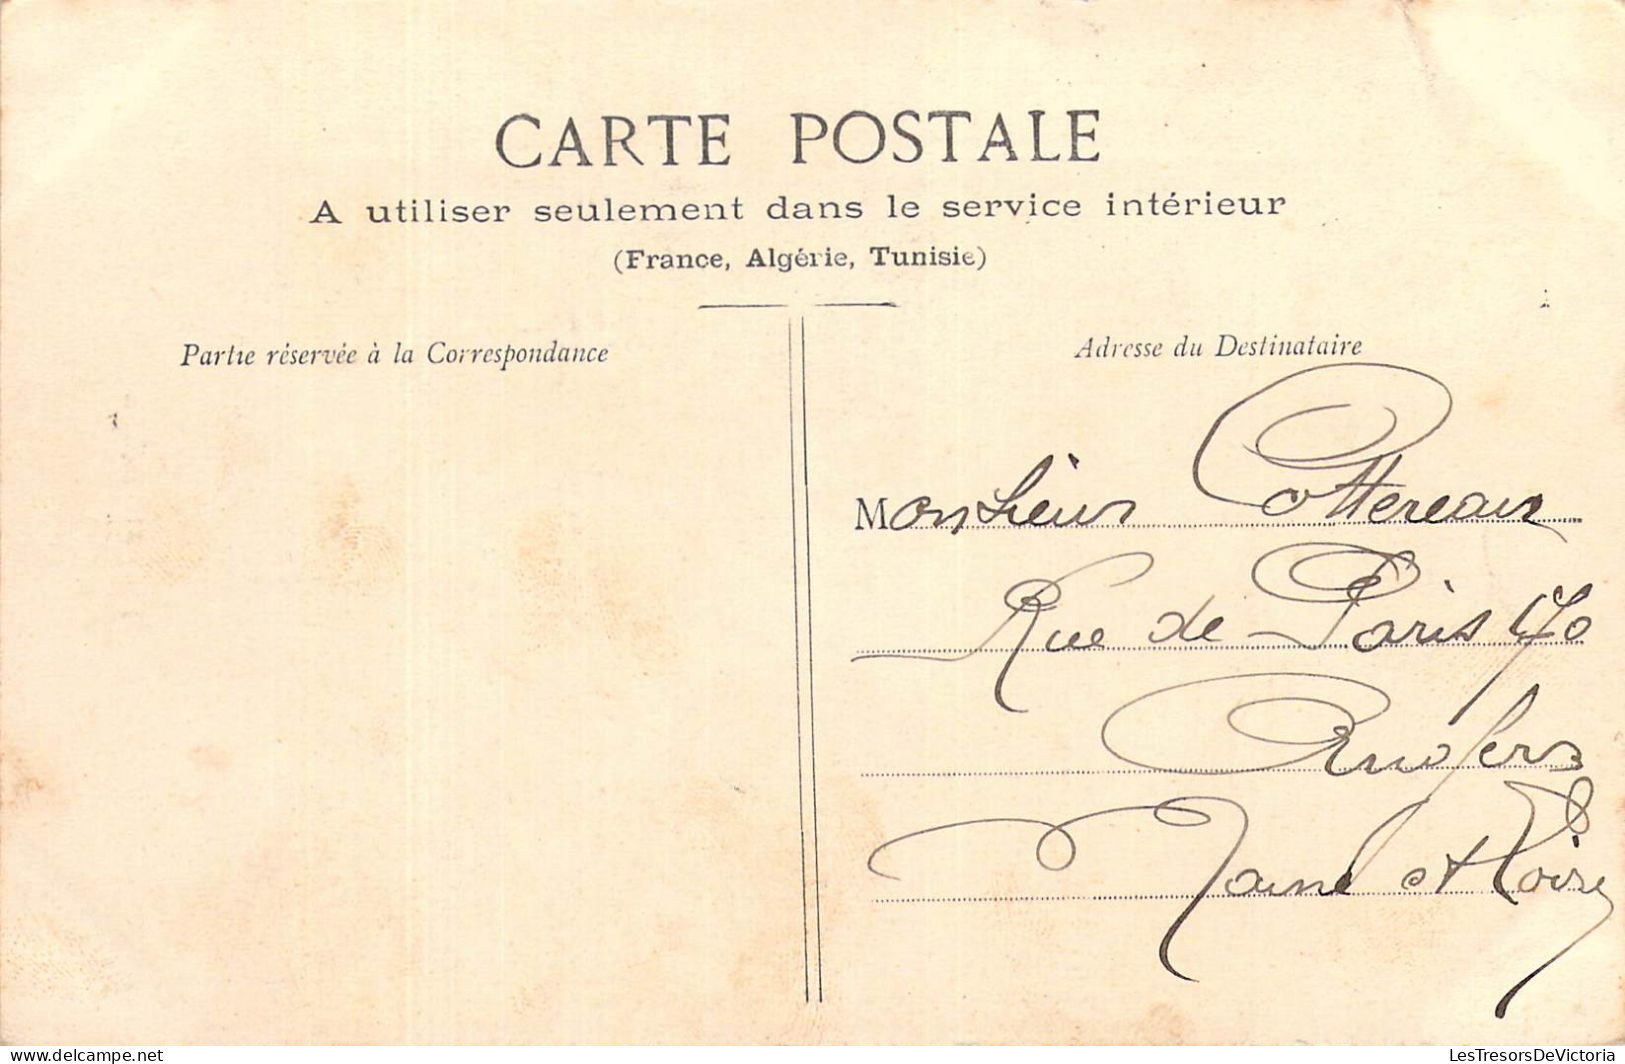 CARTE POSTALE
A utiliser seulement dans le service intérieur
(France, Algérie, Tunisie)
Partie réservée à la Correspondance
Adresse du Destinataire
Monsieur Cottereau
Rue de Paris 70
Angers
Maine et Loire
delcampe.net
LesTresorsDeVictoria